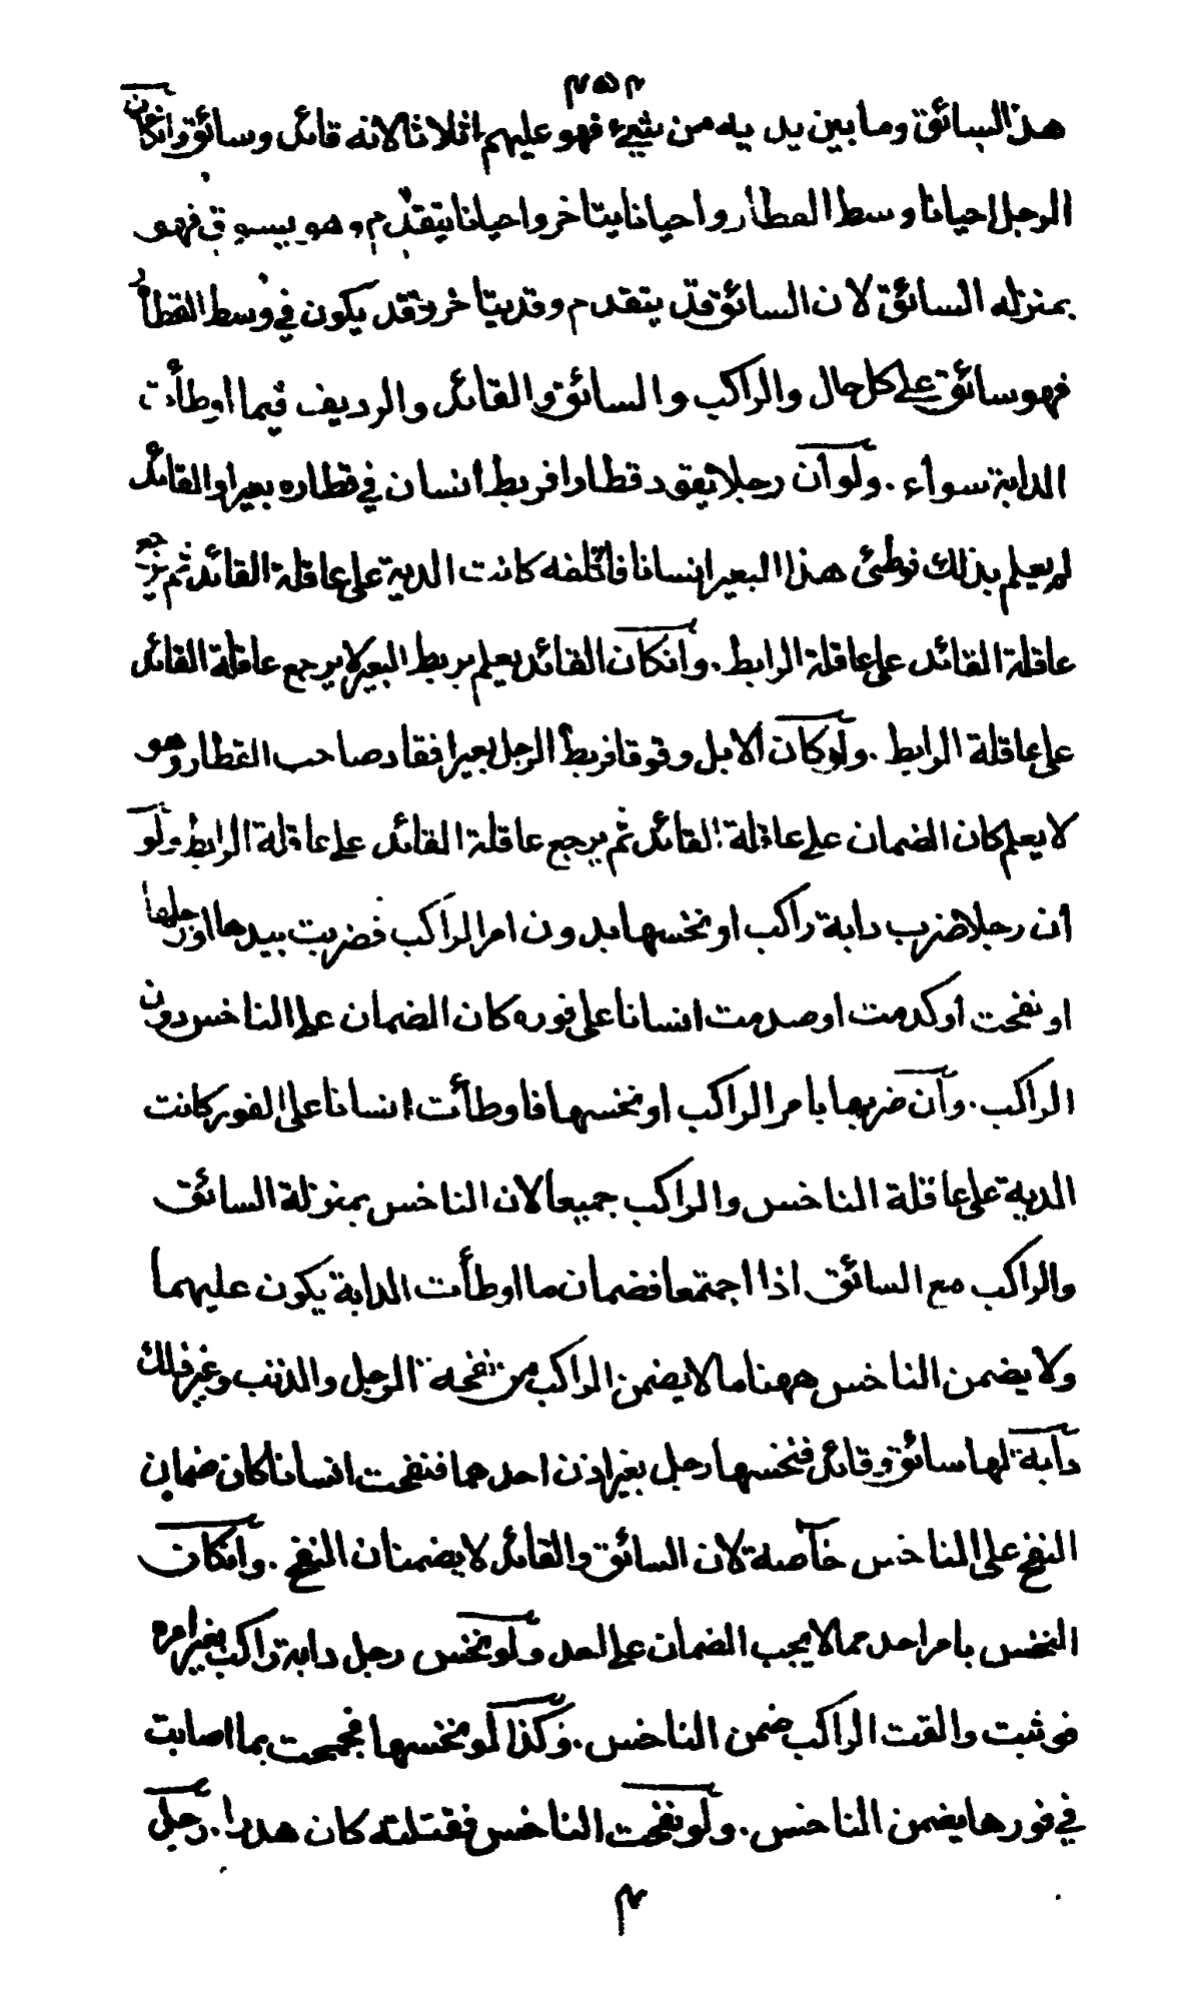 ٢٥٢
هذا السائق وما بين يديه من شيئ فهو عليهم اثلاثا لانه قائد وسائق وانكان
الرجل احيانا وسط القطار واحيانا يتاخر واحيانا يتقدم وهو يسوق فهو
بمنزله السائق لان السائق قد يتقدم وقد يتاخر وقد يكون في وسط القطار
فهو سائق على كل حال والراكب والسائق والقائد والرديف فيما اوطأت
الدابة سواء . ولو أن رجلا يقود قطارا فربط انسان في قطاره بعيرا والقائد
لم يعلم بذلك فوطئ هذا البعير انسانا فاتلفه كانت الدية على عاقلة القائد ثم يرجع
عاقلة القائد على عاقلة الرابط . وانكان القائد يعلم بربط البعير لا يرجع عاقلة القائد
على عاقلة الرابط . ولو كان الابل وقوفا فربط الرجل بعيرا فقاد صاحب القطار وهو
لا يعلم كان الضمان على عاقلة القائد ثم يرجع عاقلة القائد على عاقلة الرابط ولو
أن رجلا ضرب دابة راكب او نخسها بدون امر الراكب فضربت بيدها او رجلها
او نفحت أو كدمت او صدمت انسانا على فوره كان الضمان على الناخس دون
الراكب . وأن ضربها بامر الراكب او نخسها فاوطأت انسانا على الفور كانت
الدية على عاقلة الناخس والراكب جميعا لان الناخس بمنزلة السائق
والراكب مع السائق اذا اجتمعا فضمان ما اوطأت الدابة يكون عليهما
ولا يضمن الناخس ههنا ما لا يضمن الراكب من نفحة الرجل والذنب وغير ذلك
دابة لها سائق وقائد فنخسها رجل بغير اذن احدهما فنفحت انسانا كان ضمان
النفح على الناخس خاصة لان السائق والقائد لا يضمنان النفح . وانكان
النخس بامر احدهما لا يجب الضمان على احد ولو نخس رجل دابة راكب بغير امره
فوثبت والقت الراكب ضمن الناخس . وكذا لو نخسها فجمحت بما اصابت
في فورها يضمن الناخس . ولو نفحت الناخس فقتلته كان هدرا . رجل